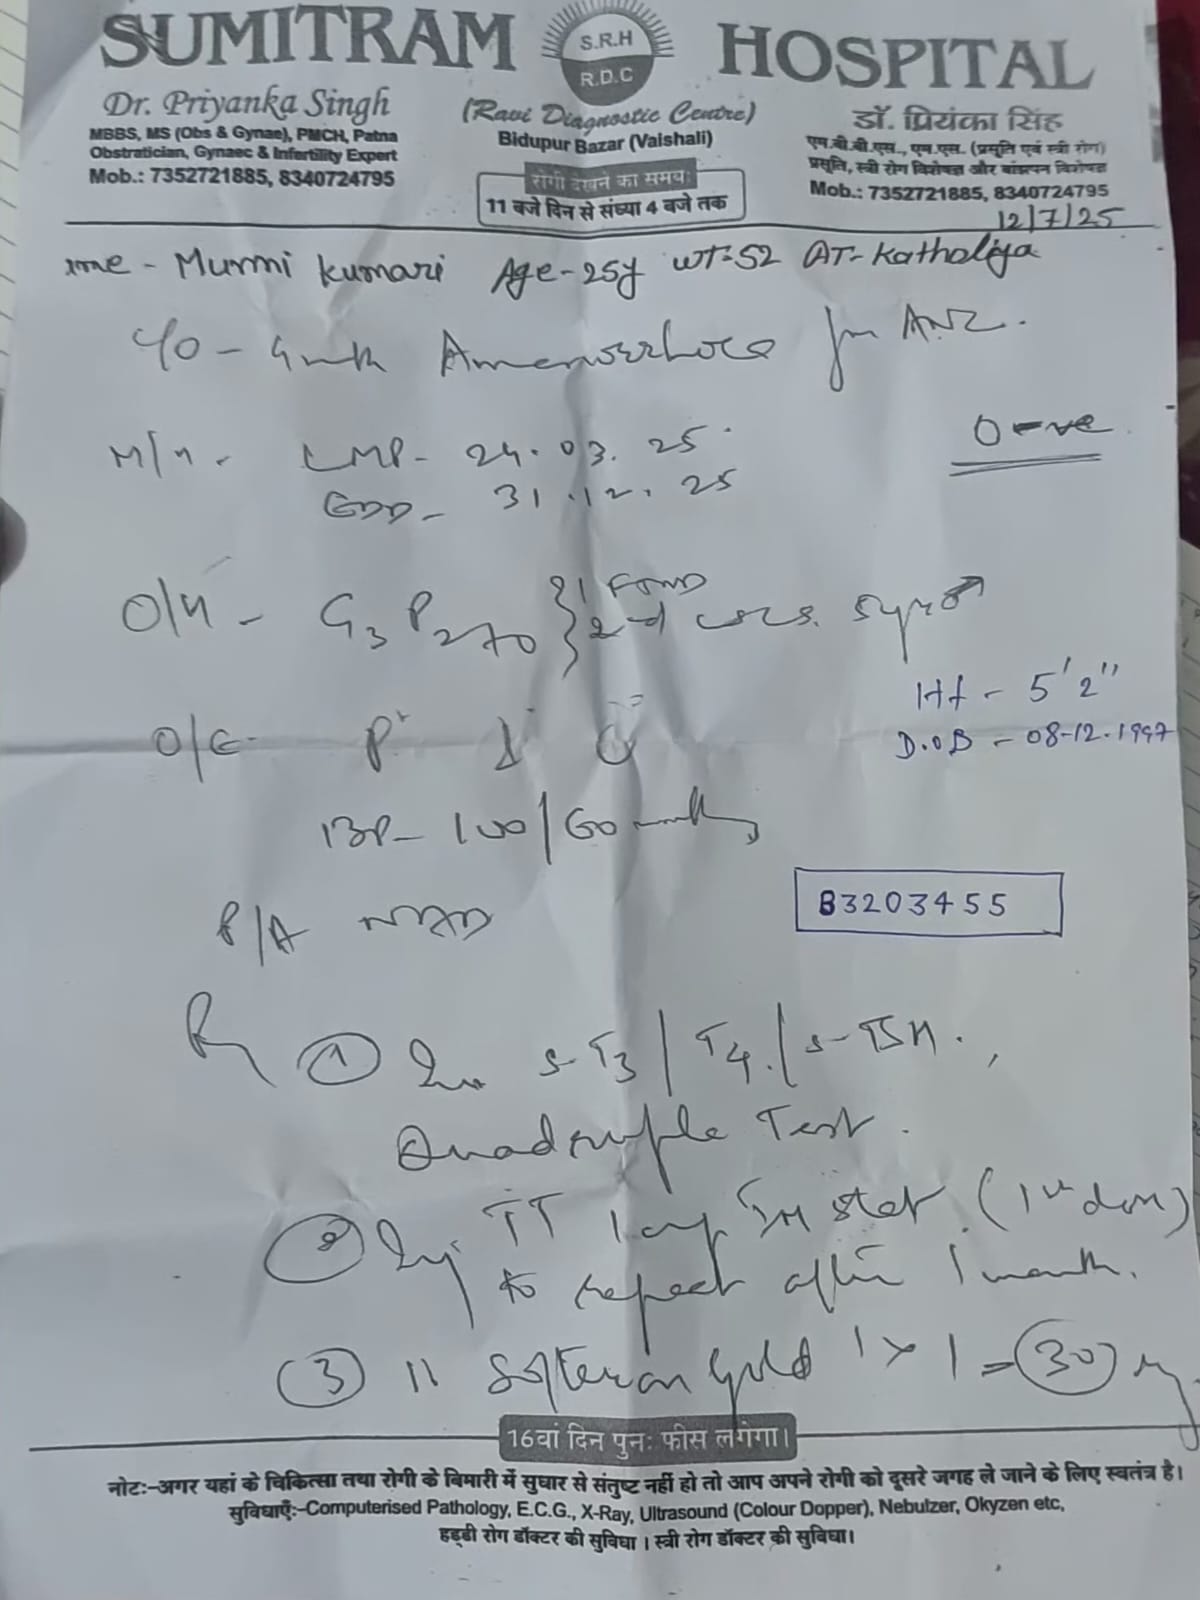 SUMITRAM HOSPITAL
S.R.H
R.D.C
Dr. Priyanka Singh
MBBS, MS (Obs & Gynae), PMCH, Patna
Obstratician, Gynaec & Infertility Expert
Mob.: 7352721885, 8340724795
(Ravi Diagnostic Centre)
Bidupur Bazar (Vaishali)
रोगी देखने का समयः
11 बजे दिन से संध्या 4 बजे तक
डॉ. प्रियंका सिंह
एम.बी.बी.एस., एम.एस. (प्रसुति एवं स्त्री रोग)
प्रसुति, स्त्री रोग विशेषज्ञ और बांझपन विशेषज्ञ
Mob.: 7352721885, 8340724795
12/7/25
Kumari Age - 25y WT-52 AT- Katholiya
Amenorrhoea for ANC.
O -ve
LMP - 24.03.25
EDD - 31.12.25
O/H - G3P2+0
Ht - 5'2"
D.OB - 08-12-1997
O/E
BP - 100/60
P/A NAD
83203455
Rx
① S-T3/T4/S-TSH.,
Quadruple Test.
② Inj. TT 1 amp IM stat. (1st dose)
to repeat after 1 month.
③ Softeron Gold 1 x 1 = 30
16वां दिन पुनः फीस लगेगा।
नोटः-अगर यहां के चिकित्सा तथा रोगी के बिमारी में सुधार से संतुष्ट नहीं हो तो आप अपने रोगी को दूसरे जगह ले जाने के लिए स्वतंत्र है।
सुविधाएँः-Computerised Pathology, E.C.G., X-Ray, Ultrasound (Colour Dopper), Nebulzer, Okyzen etc,
हड्डी रोग डॉक्टर की सुविधा । स्त्री रोग डॉक्टर की सुविधा।